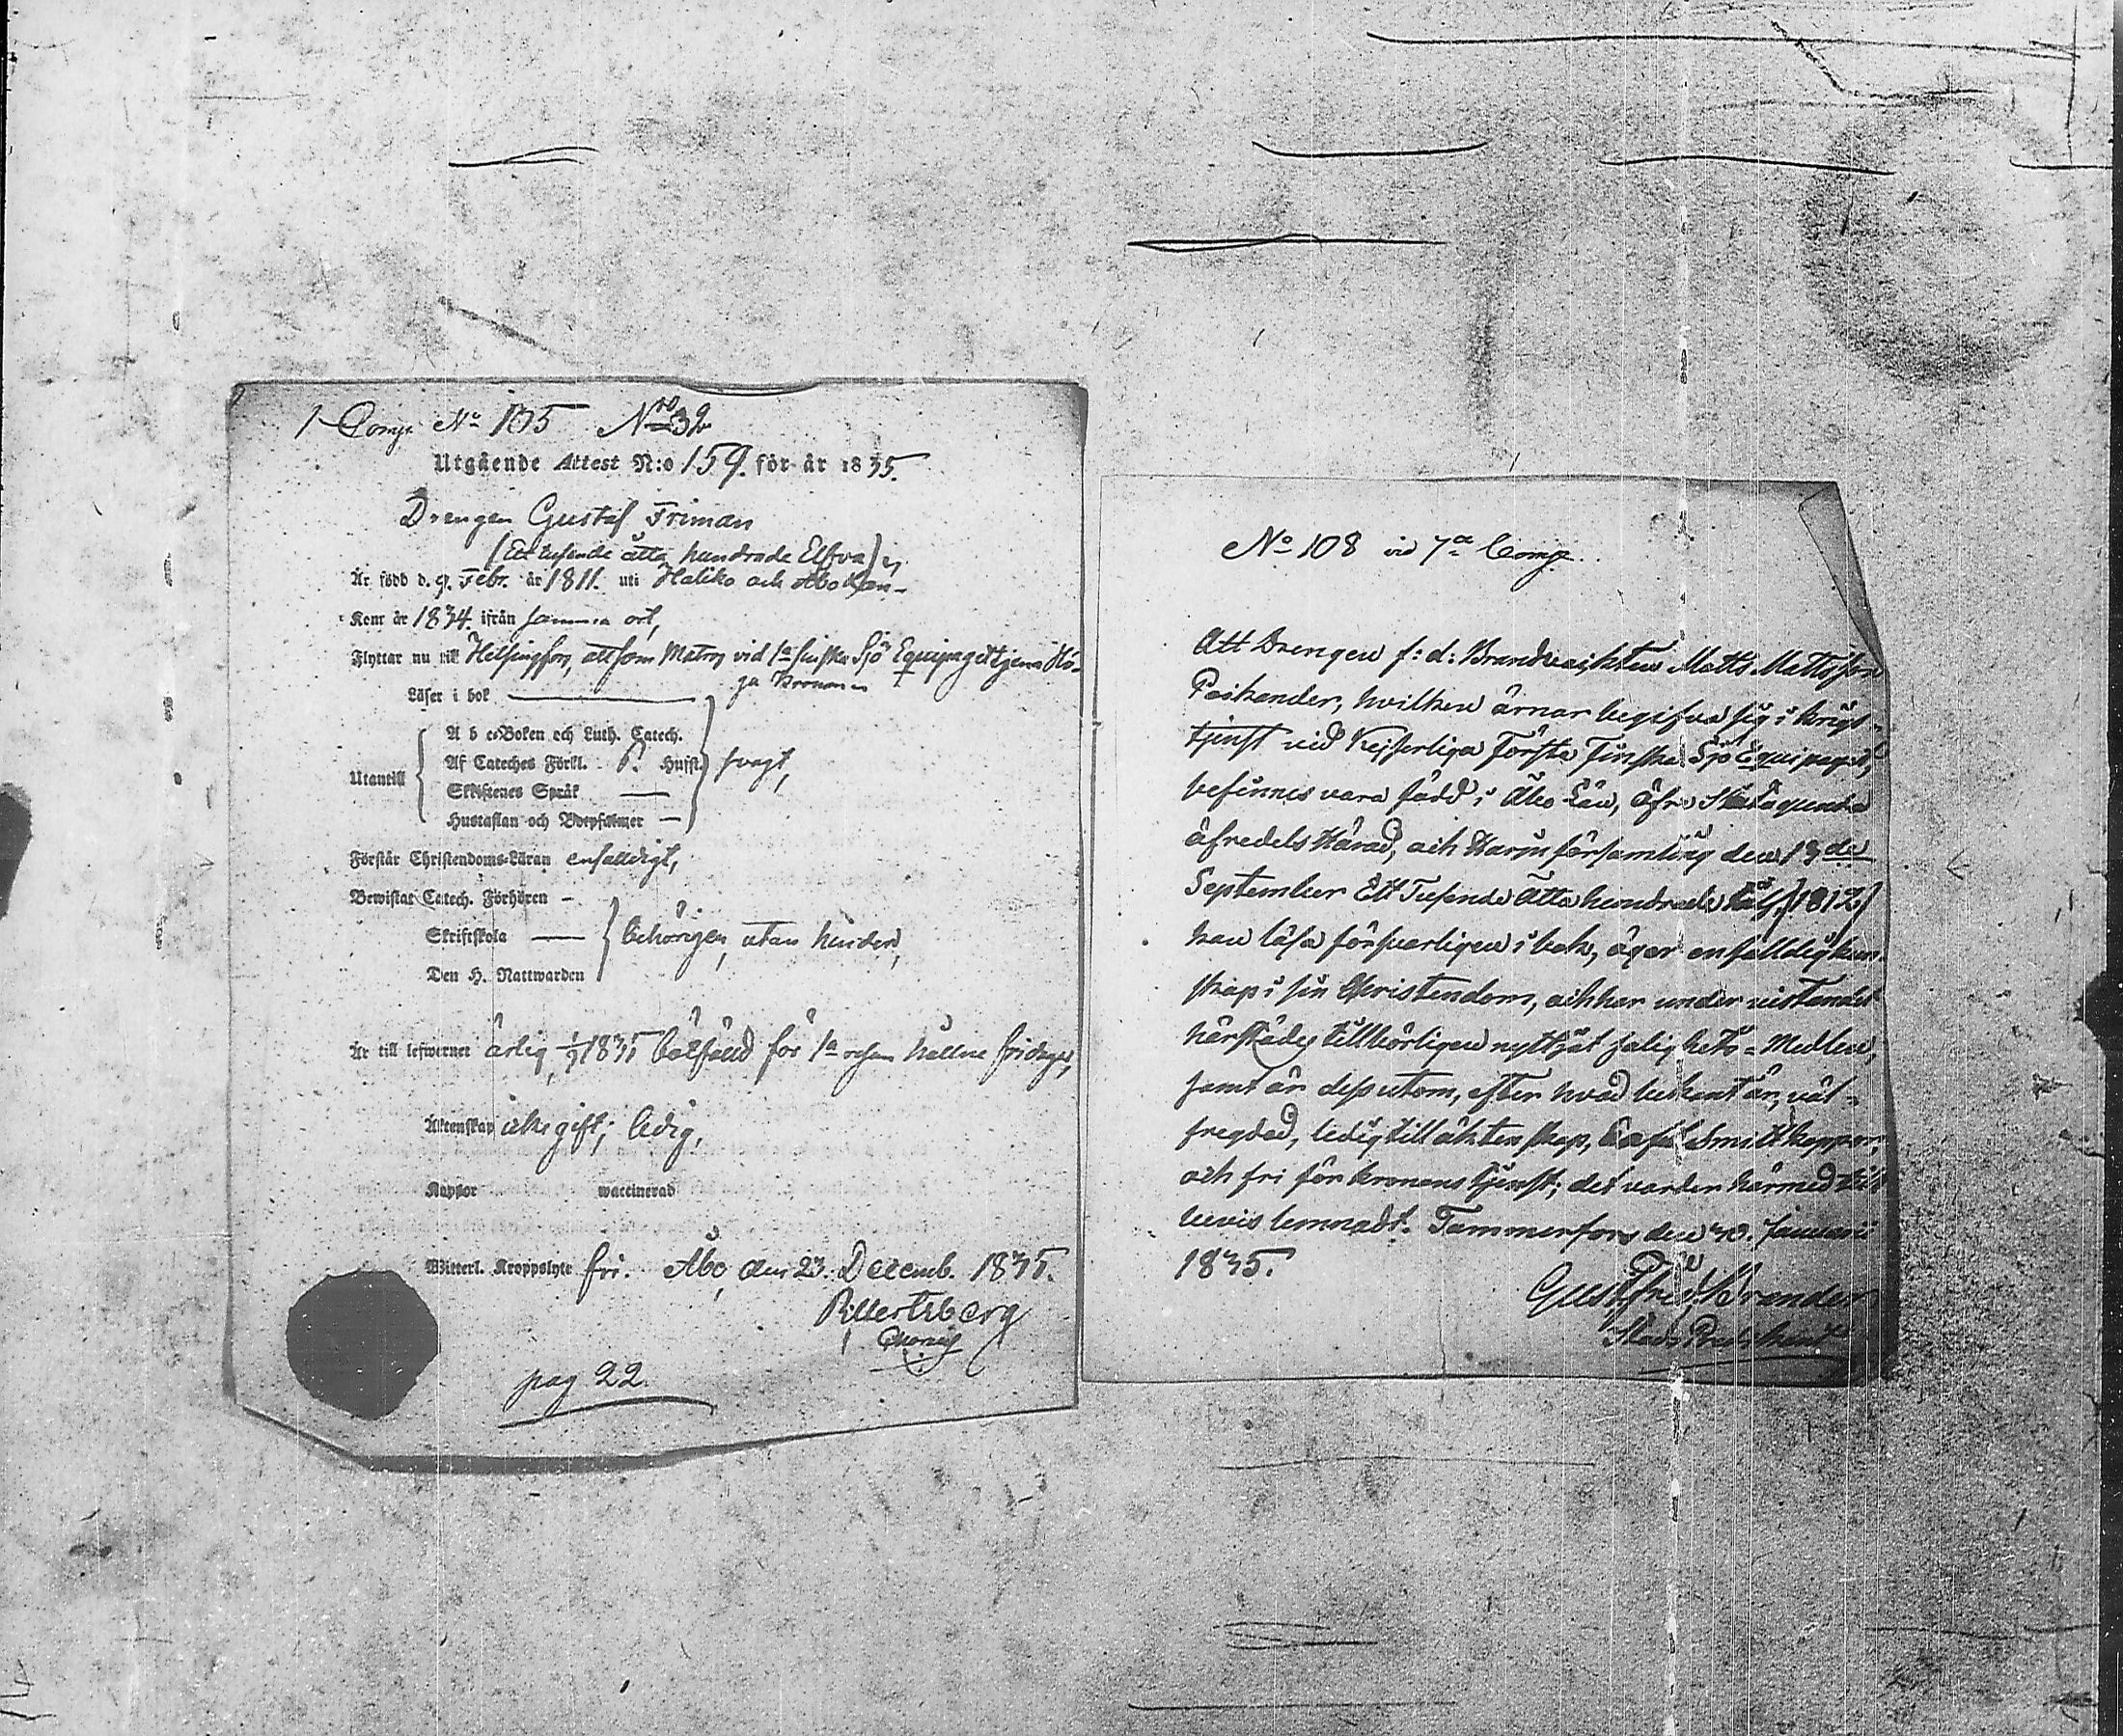 1 Comp. No 105 Nro 32
Utgående Attest N:o 159. för år 1835.
Drengen Gustaf Friman
(Ett tusende åtta hundrade Elfva)
Är född d. 9. Febr. år 1811. uti Haliko och Åbo Län
Kom år 1834. ifrån samma ort,
Flyttar nu till Helsingfors, att som Matros vid 1a finska Sjö Equipaget tjena Hö-
ga Kronan
Läser i bok
A b c-Boken och Luth. Catech.
Af Cateches Förkl. Hust. svagt,
Utantill
Skriftenes Språk
Hustaflan och Botpsalmer
Förstår Christendoms-Läran enfaldigt,
Bewistat Catech. Förhören
Skriftskola behörigen, utan hinder,
Den H. Nattwarden
Är till lefwernet ärlig, 1835 för 1a hållne fridagar,
Äktenskap icke gift; ledig,
Koppor waccinerad
Witterl. Kroppslyte fri. Åbo, den 23. Decemb. 1835.
pag 22.
No 108 vid 7de Comp.
Att Drengen f: d: Brandvackten Matts Mattsson
Paikander, hvilken ärnar begifva sig i krigs-
tjenst vid Kejserliga Första Finska Sjö Equipaget,
befinnes vara född i Åbo Län, Öfre Satagunda
öfredels Härad, och Harju församling den 13de
September Ett Tusende Åtta hundrade Tolf, (1812)
kan läsa försvarligen i bok, äger enfalldig kun-
skap i sin Christendom, och har under vistandet
härstädes tillbörligen nyttjat salighets-Medlen,
samt är dessutom, efter hvad bekant är, väl-
fregdad, ledig till äktenskap, haft Smittkoppor,
och fri för Kronans tjenst; det varder härmed till
bevis lemnadt. Tammerfors den 30. Januarii
1835.
Gust. Fred. Krander
Stads Predikant